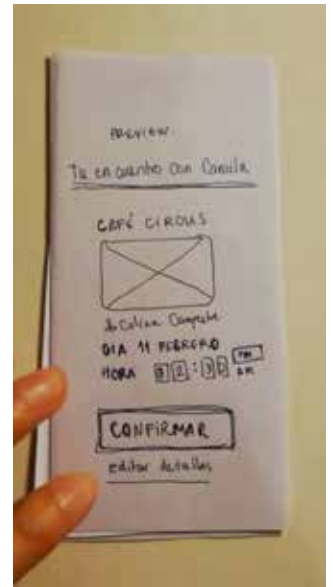 PREVIEW.
Tu encuentro con Camila
CAFÉ CIRCUS
DIA 11 FEBRERO
HORA :3 PM
AM
CONFIRMAR
editar detalles